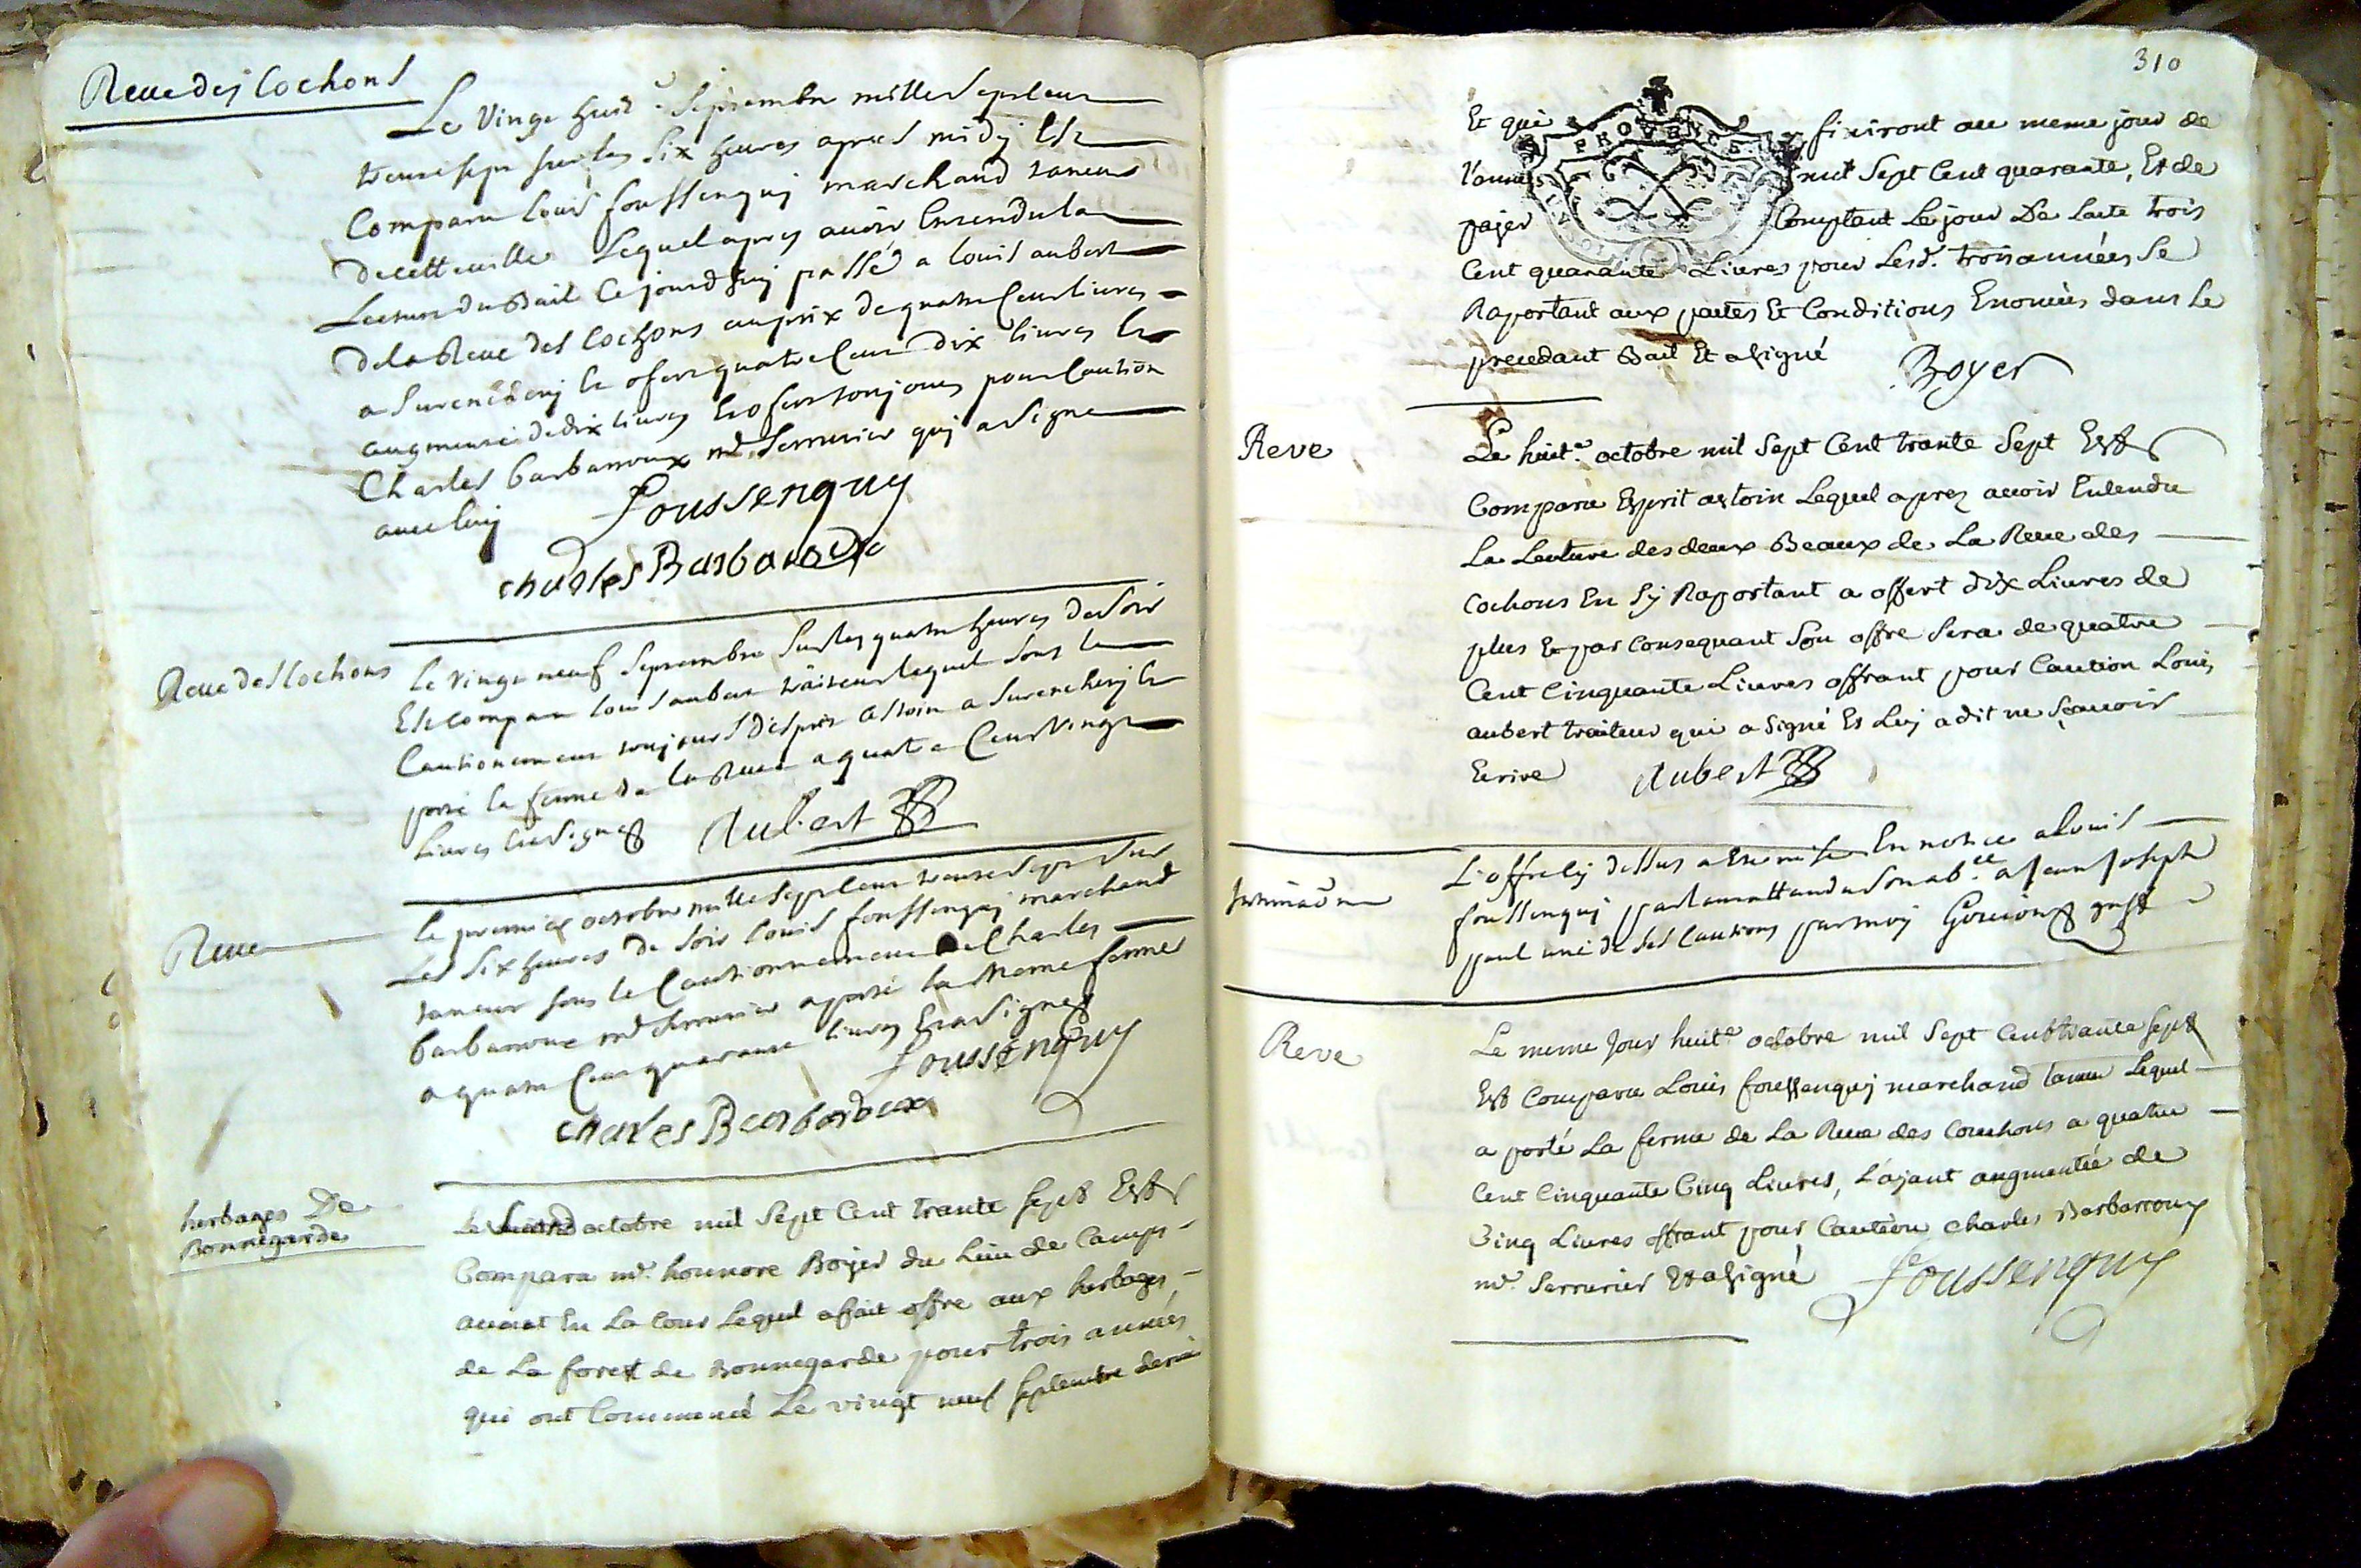 Reve des Cochons
Le Vingt huit.e Septembre mille Sept Cent
trente sept sur les Six heures apres midy Est
Comparu Louis foussenquy marchand taneur
de cette ville Lequel apres avoir Entendu la
Lecture du Bail Ce jourdhuy passé a louis aubert
de la Reve des Cochons au prix de quatre Cent livres
a surenchery et ofert quatre Cent Dix livres Et
augmenté de dix livres Et ofert toujours pour Caution
Charles barbarroux m.e Serrurier quy a Signe
avec luy
foussenquy
charles Barbaroux
Reve des Cochons
le Vingt neuf Septembre Sur les quatre heures du Soir
Est Comparu louis aubert traiteur lequel sous le
Cautionement toujours d'esprit astoin a surenchery Et
porté la ferme de la Reve a quatre Cent Vingt
Livres Et a Signé
Aubert
Reve
le premier octobre mille Sept Cent trente Sept Sur
Les Six heures du Soir louis foussenquy marchand
taneur sous le Cautionnement de Charles
barbarroux m.e Serrurier a porté la meme ferme
a quatre Cent quarante livres Et a Signé
foussenquy
charles Barbaroux
herbages De
Bonnegarde
Le Second octobre mil Sept Cent trante Sept Est
Compara m.e honnore Boyer du Lieu de Camps
avocat En La Cour Lequel a fait offre aux herbages
de La forest de Bonnegarde pour trois années
qui ont Commencé Le vingt neuf Septembre dernié
310
PROVENCE
Et qui finiront au meme jour de
l'année mil Sept Cent quarante, Et de
payer Comptant Le jour De Lacte trois
Cent quarante Livres pour Lesd. trois années Se
Raportant aux pactes Et Conditions Enoncées dans Le
precedant Bail Et a Signé
Boyer
Reve
Le huit.e octobre mil Sept Cent trante Sept Est
Comparu Esprit astoin Lequel aprez avoir Entendu
La Lecture des deux Beaux de La Reve des
Cochons En Sy Raportant a offert dix Livres de
plus Et par Consequant Son offre Sera de quatre
Cent Cinquante Livres offrant pour Caution Louis
aubert traiteur qui a Signé Et Luy a dit ne Sçavoir
Ecrire
Aubert
L'offre cy dessus a Eté mise En notice a louis
foussenquy parlant attendu Son ab.ce a Jean Joseph
paul une de ses Cautions par moy greff
Reve
Le meme Jour huit.e octobre mil Sept Cent trante Sept
Est Comparu Louis foussenquy marchand taneur Lequel
a porté La ferme de La Reve des Couchons a quatre
Cent Cinquante Cinq Livres, L'ajant augmentée de
Cinq Livres offrant pour Caution Charles Barbarroux
m.e Serrurier Et a Signé
foussenquy